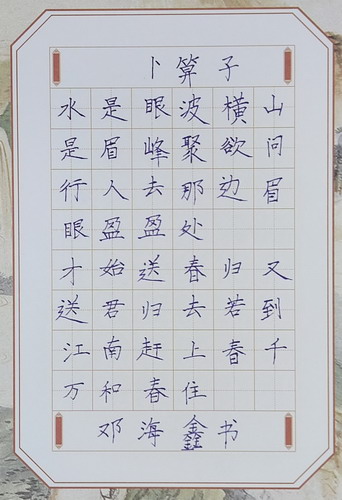 卜算子
水是眼波横山
是眉峰聚欲问
行人去那边眉
眼盈盈处
才始送春归又
送君归去若到
江南赶上春千
万和春住
邓海鑫书